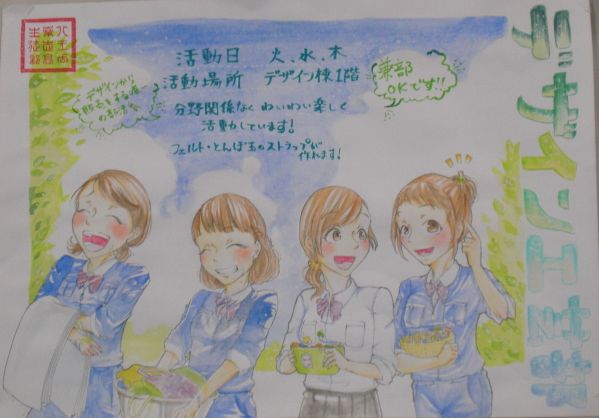 デザイン工芸部
活動日 火、水、木
活動場所 デザイン棟1階
分野関係なくわいわい楽しく
活動しています!
フェルト・とんぼ玉のストラップが
作れます!
兼部
OKです!!
デザインから
販売までを
の部活